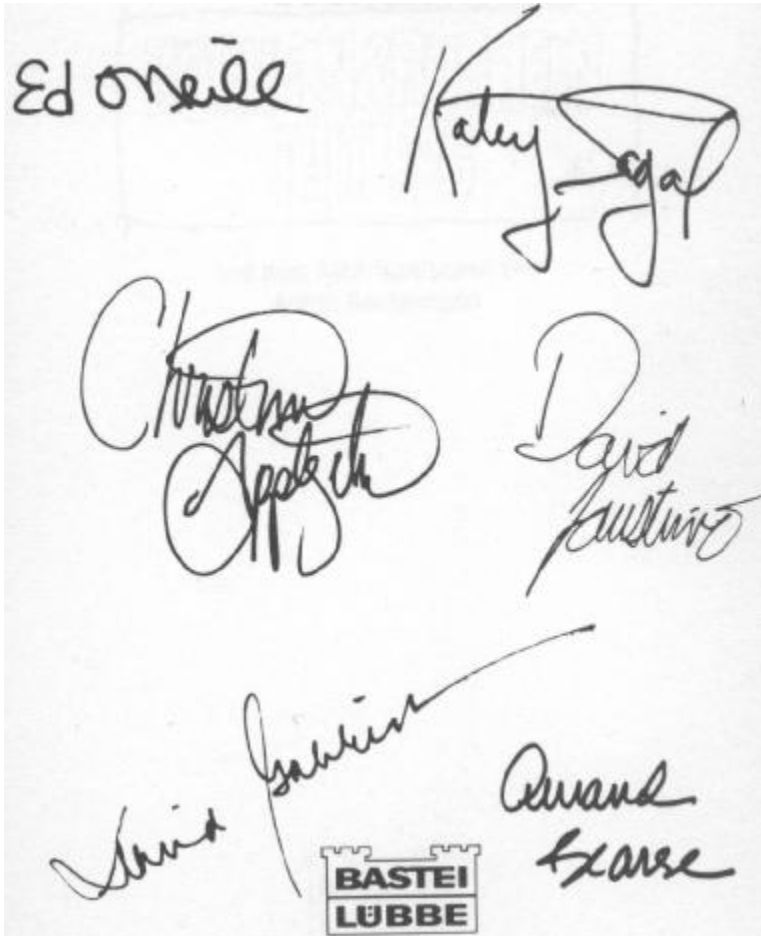 Ed O'Neill
Katey Sagal
Christina
Applegate
David
Faustino
David Garrison
Amanda
Bearse
BASTEI
LÜBBE